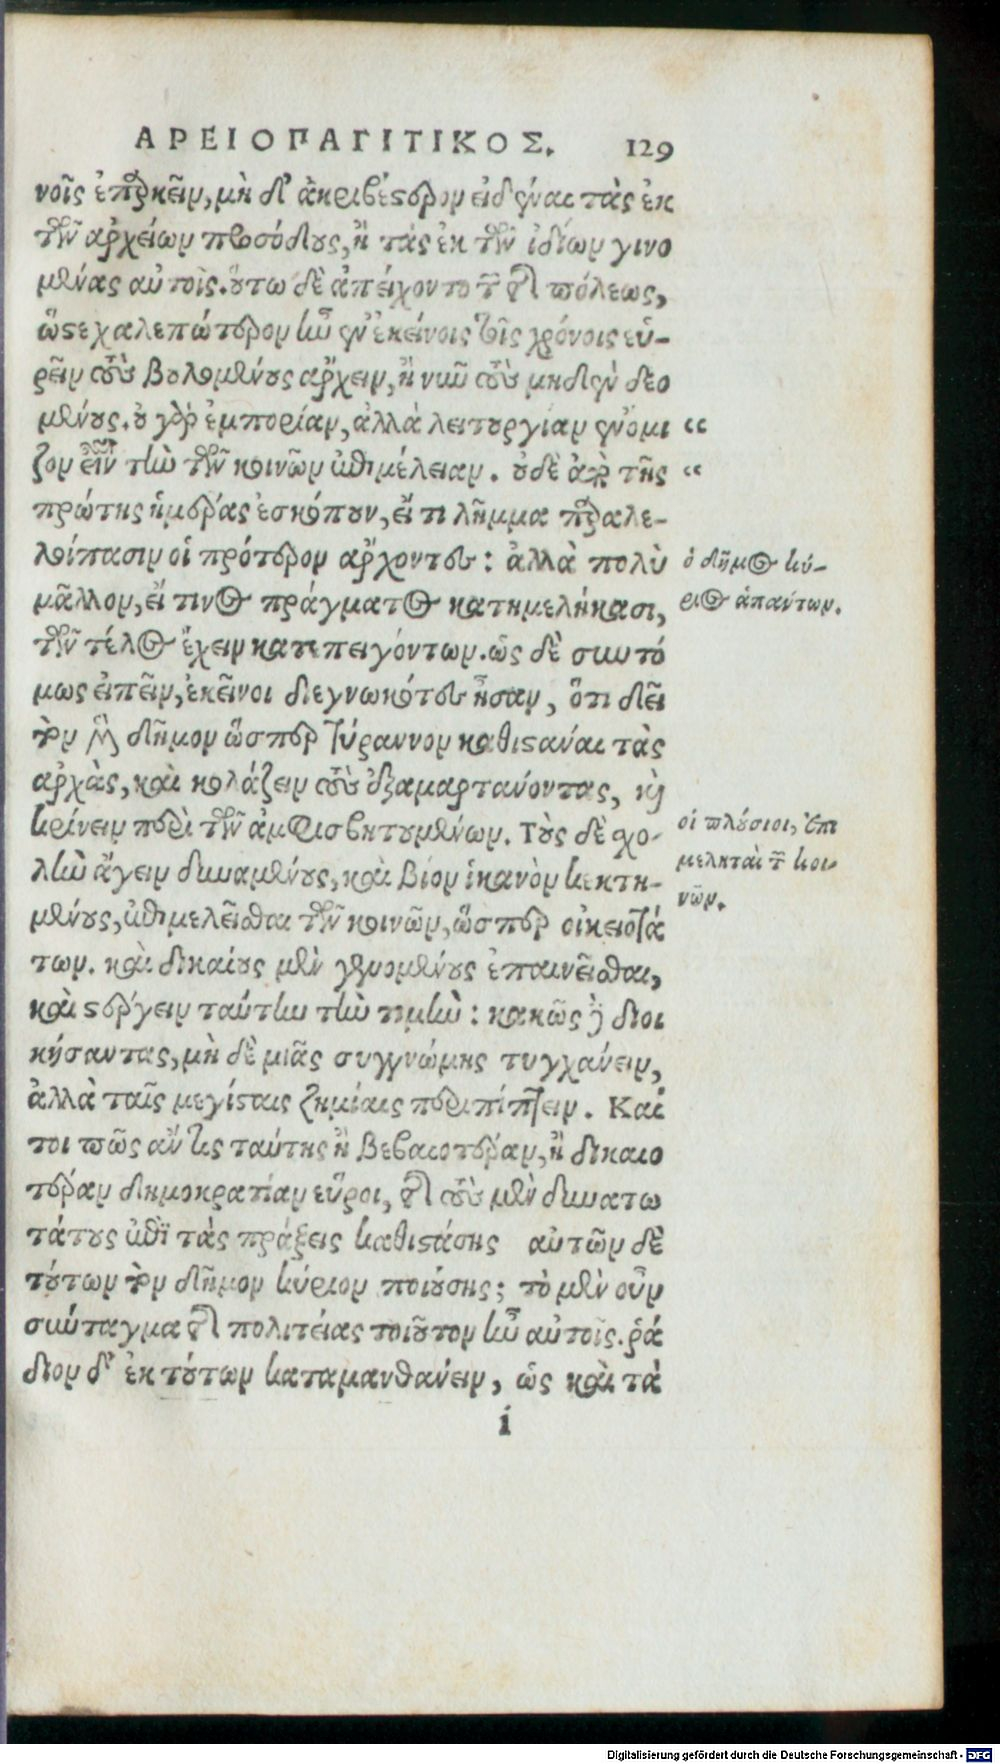 ΑΡΕΙΟΠΑΓΙΤΙΚΟΣ. 129
νοῖς ἐπαρκεῖν, μὴ δ' ἀκριβέστερον εἰδέναι τὰς ἐκ
τῶν ἀρχείων προσόδους, ἢ τὰς ἐκ τῶν ἰδίων γινο
μένας αὐτοῖς. οὕτω δὲ ἀπείχοντο τῶν τῆς πόλεως,
ὥστε χαλεπώτερον ἦν ἐν ἐκείνοις τοῖς χρόνοις εὑ-
ρεῖν τοὺς βουλομένους ἄρχειν, ἢ νῦν τοὺς μηδὲν δεο
μένους. οὐ γὰρ ἐμπορίαν, ἀλλὰ λειτουργίαν ἐνόμι “
ζον εἶναι τὴν τῶν κοινῶν ἐπιμέλειαν. οὐδὲ ἀπὸ τῆς “
πρώτης ἡμέρας ἐσκόπουν, εἴ τι λῆμμα παραλε-
λοίπασιν οἱ πρότερον ἄρχοντες: ἀλλὰ πολὺ
μᾶλλον, εἴ τινος πράγματος κατημελήκασι,
τῶν τέλος ἔχειν κατεπειγόντων. ὡς δὲ συντό
μως εἰπεῖν, ἐκεῖνοι διεγνωκότες ἦσαν, ὅτι δεῖ
τὸν μὲν δῆμον ὥσπερ τύραννον καθιστάναι τὰς
ἀρχὰς, καὶ κολάζειν τοὺς ἐξαμαρτάνοντας, καὶ
κρίνειν περὶ τῶν ἀμφισβητουμένων. Τοὺς δὲ σχο-
λὴν ἄγειν δυναμένους, καὶ βίον ἱκανὸν κεκτη-
μένους, ἐπιμελεῖσθαι τῶν κοινῶν, ὥσπερ οἰκειοτά
των. καὶ δικαίους μὲν γενομένους ἐπαινεῖσθαι,
καὶ στέργειν ταύτην τὴν τιμὴν: κακῶς δὲ διοι
κήσαντας, μὴ δὲ μιᾶς συγγνώμης τυγχάνειν,
ἀλλὰ ταῖς μεγίσταις ζημίαις περιπίπτειν. Καί
τοι πῶς ἄν τις ταύτης ἢ βεβαιοτέραν, ἢ δικαιο
τέραν δημοκρατίαν εὕροι, τῆς τοὺς μὲν δυνατω
τάτους ἐπὶ τὰς πράξεις καθιστάσης αὐτῶν δὲ
τούτων τὸν δῆμον κύριον ποιούσης; τὸ μὲν οὖν
σύνταγμα τῆς πολιτείας τοιοῦτον ἦν αὐτοῖς. ῥά
διον δ' ἐκ τούτων καταμανθάνειν, ὡς καὶ τὰ
i
ὁ δῆμος κύ-
ριος ἁπάντων.
οἱ πλούσιοι, ἐπι
μεληταὶ τῶν κοι-
νῶν.
Digitalisierung gefördert durch die Deutsche Forschungsgemeinschaft - DFG